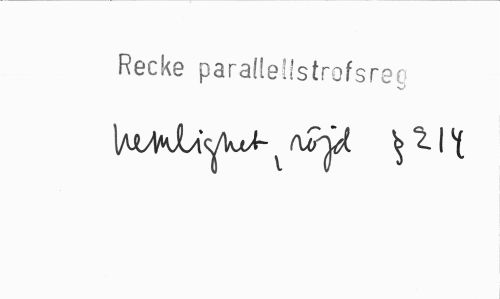 Recke parallellstrofsreg
hemlighet, röjd § 214